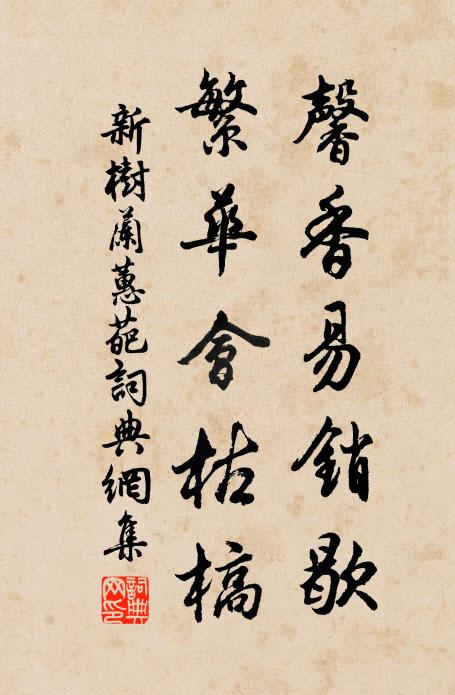 馨香易銷歇
繁華會枯槁
新樹蘭蕙葩詞典網集
詞典
网印